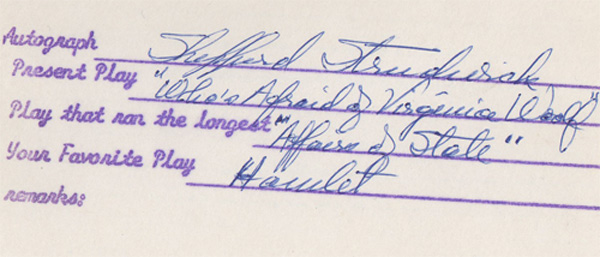 Autograph Shepperd Strudwick
Present Play "Who's Afraid of Virginia Woolf"
Play that ran the longest "Affairs of State"
Your Favorite Play Hamlet
remarks: